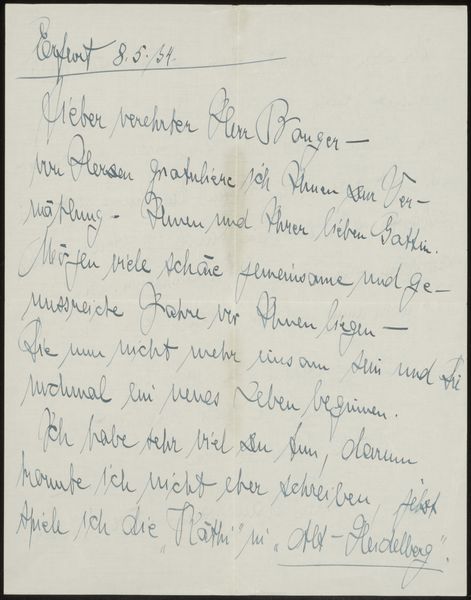 Erfurt 8.5./34.
Lieber verehrter Herr Banger —
von Herzen gratuliere ich Ihnen zur Ver-
mählung - Ihnen und Ihrer lieben Gattin.
Mögen viele schöne gemeinsame und ge-
nussreiche Jahre vor Ihnen liegen —
Die nun nicht mehr einsam sein und die
nochmal ein neues Leben beginnen.
Ich habe sehr viel zu tun, darum
konnte ich nicht eher schreiben, jetzt
spiele ich die „Käthi" in „Alt-Heidelberg".